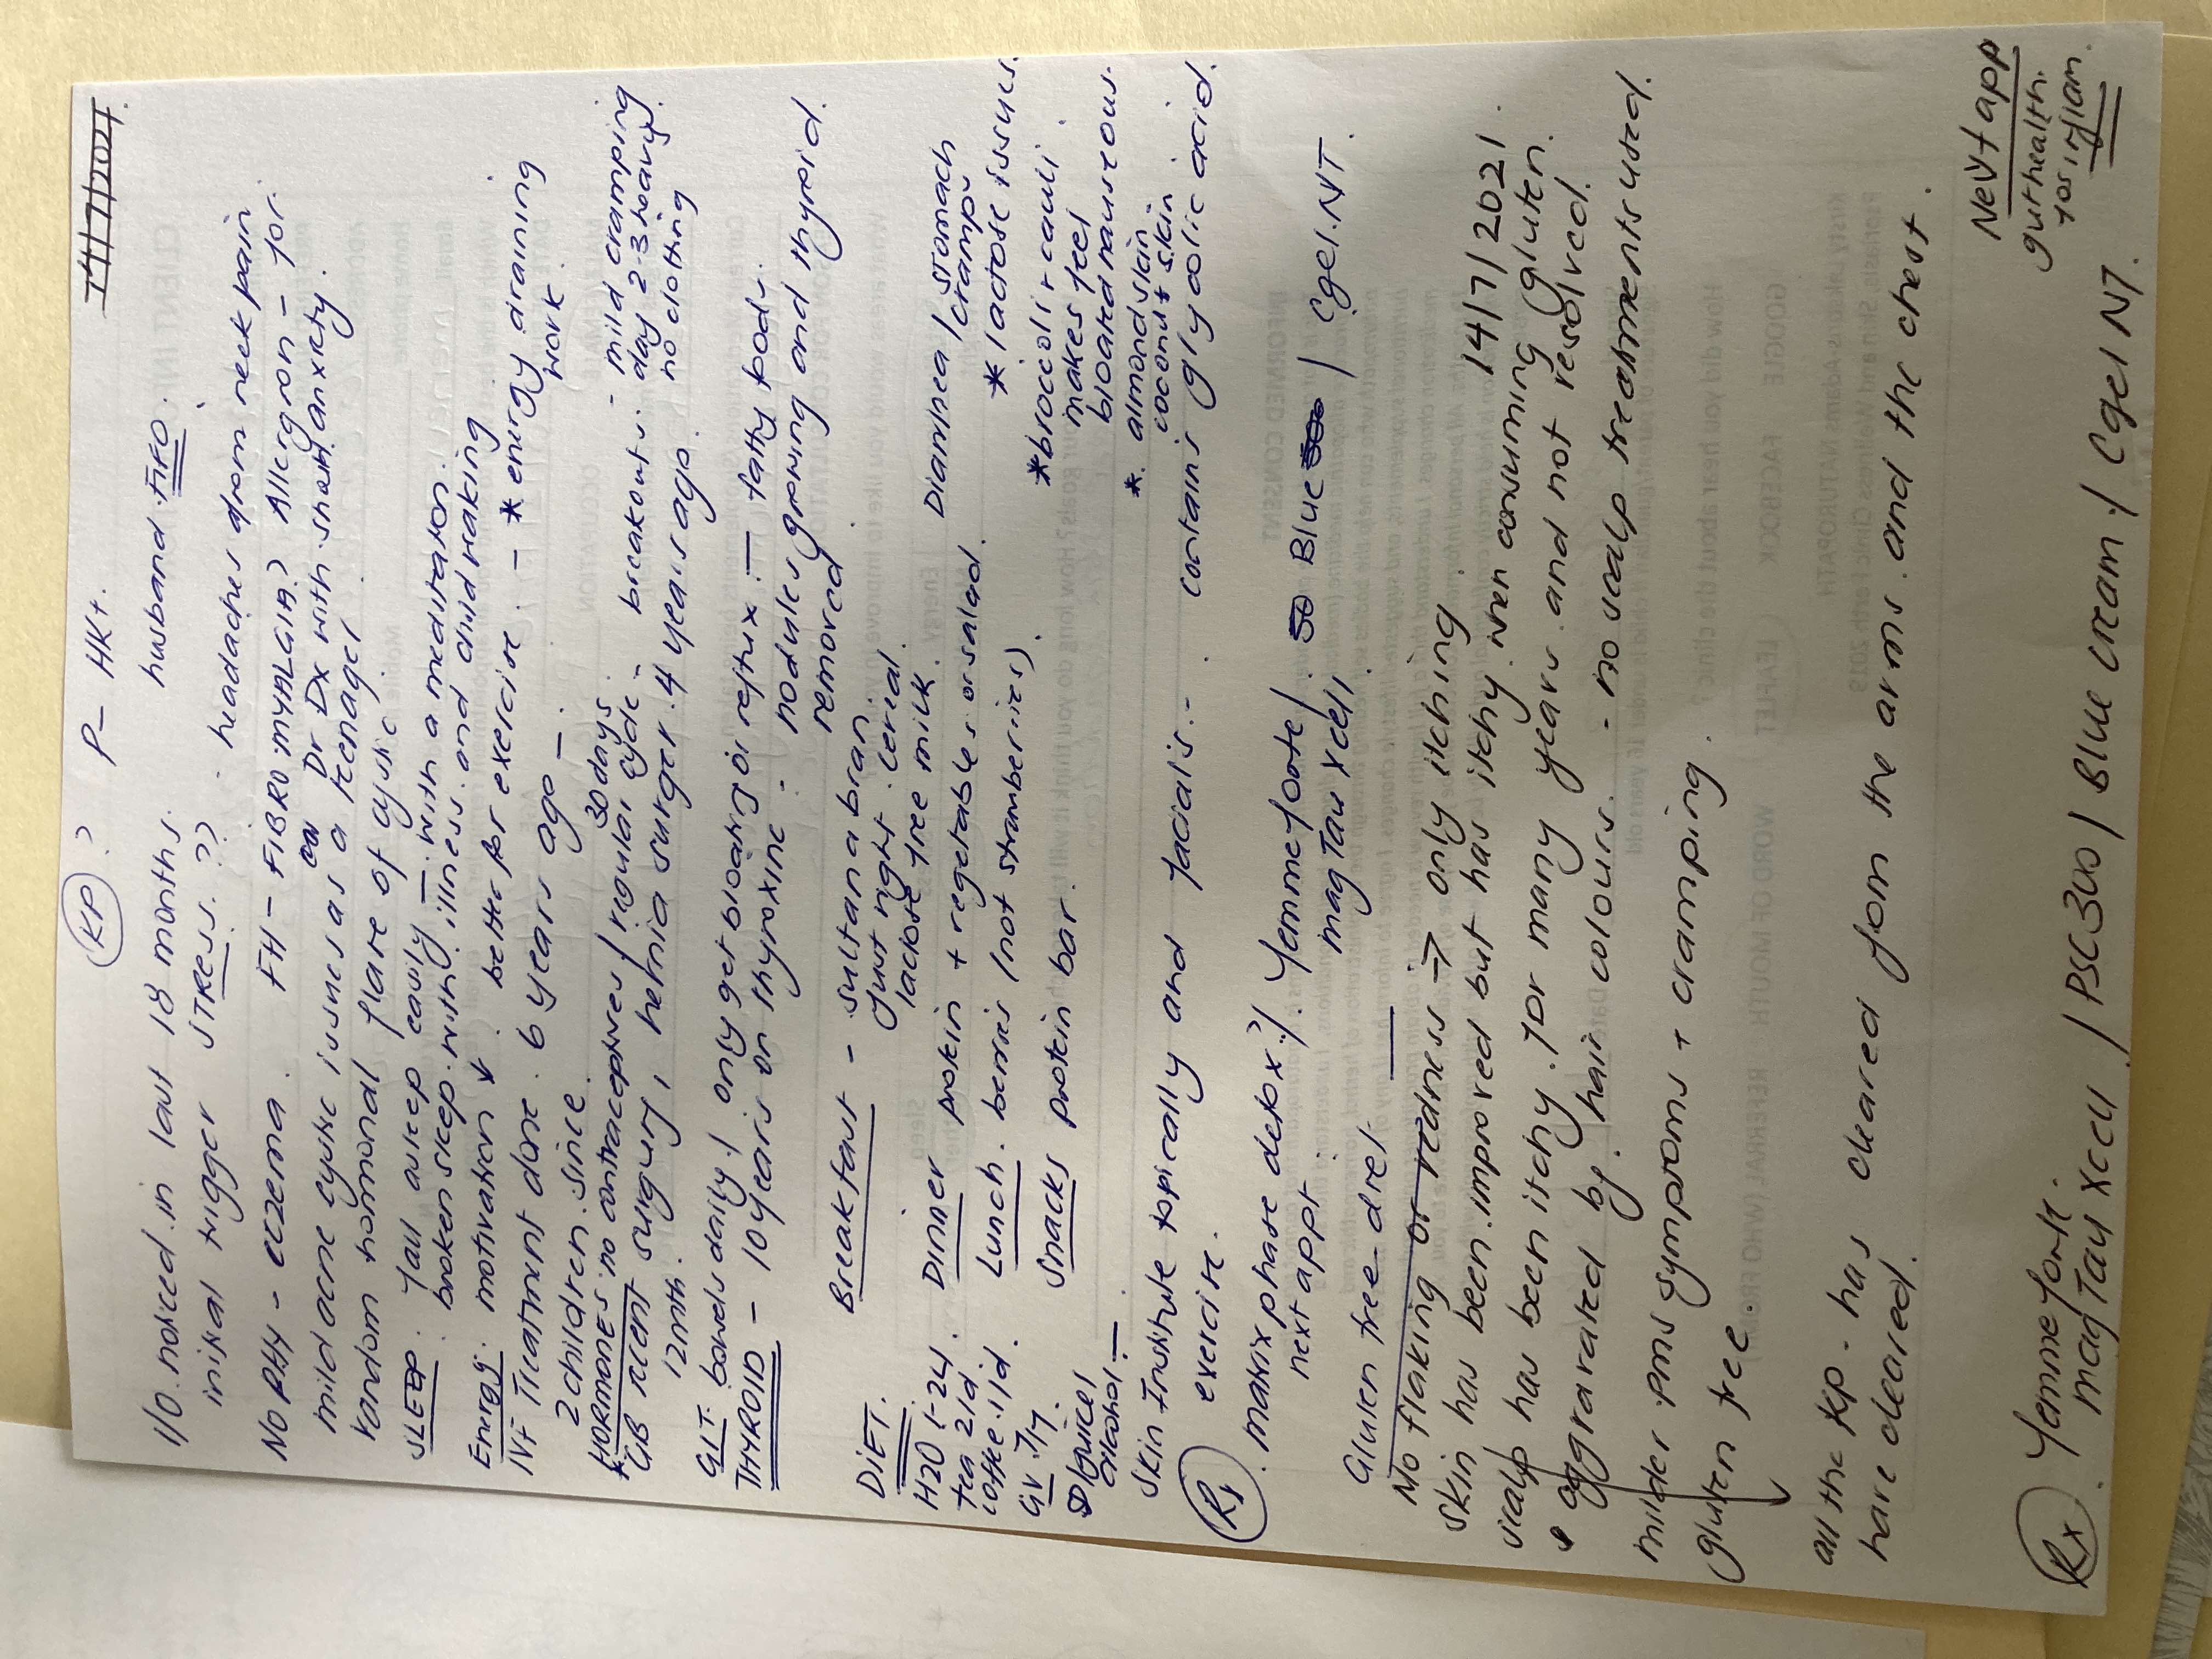 KP ? P- HK+. 14/7/2021
I/O noticed in last 18 months. husband FIFO.
initial trigger STRESS ?? headaches from neck pain
NO PHx - eczema. FH - FIBROMYALGIA? Allergron - for
Dr Dx with anxiety.
mild acne cystic issues as a teenager
random hormonal flare of cystic
SLEEP: fall asleep easily - with a meditation.
broken sleep with illness and child waking
Energy: motivation ↓ better for exercise. - * energy draining
work.
IVF Treatment done 6 years ago -
2 children since. 30 days.
* HORMONES: no contraceptives / regular cycle - breakouts - mild cramping
day 2-3 heavy
no clotting
GB recent surgury, hernia surger 4 years ago.
12mth.
GIT bowels daily / only get bloating or reflux - fatty foods.
THYROID - 10 years on thyroxine - nodules growing and thyroid
removed.
DIET. Breakfast - sultana bran
Just right cereal.
lactose free milk.
H2O 1-2L.
tea 2/d
coffee 1/d.
GV 7/7.
juice
alcohol -
Dinner protein + vegetables or salad.
Lunch. berries (not strawberries).
Snacks protein bar.
Diarrhea / stomach
cramps
* lactose issues.
* broccoli + cauli
makes feel
bloated nauseous.
* almond skin
coconut skin
Skin Institute topically and facials. - contains glycolic acid.
exercise.
Rx . matrix phase detox? / Yemmeforte / Blue / Cgel. NT.
next appt. mag Tau Xcell,
Gluten free diet -
No flaking or redness → only itching 14/7/2021
skin has been improved but has itchy when consuming gluten.
scalp has been itchy for many years and not resolved.
aggravated by hair colours. - no scalp treatments used.
milder pms symptoms + cramping
gluten free.
all the KP has cleared from the arms and the chest.
have cleared.
Rx . Yemmeforte.
mag Tau Xcell / PSC300 / Blue cream / Cgel NT.
Next app
guthealth.
for inflam.